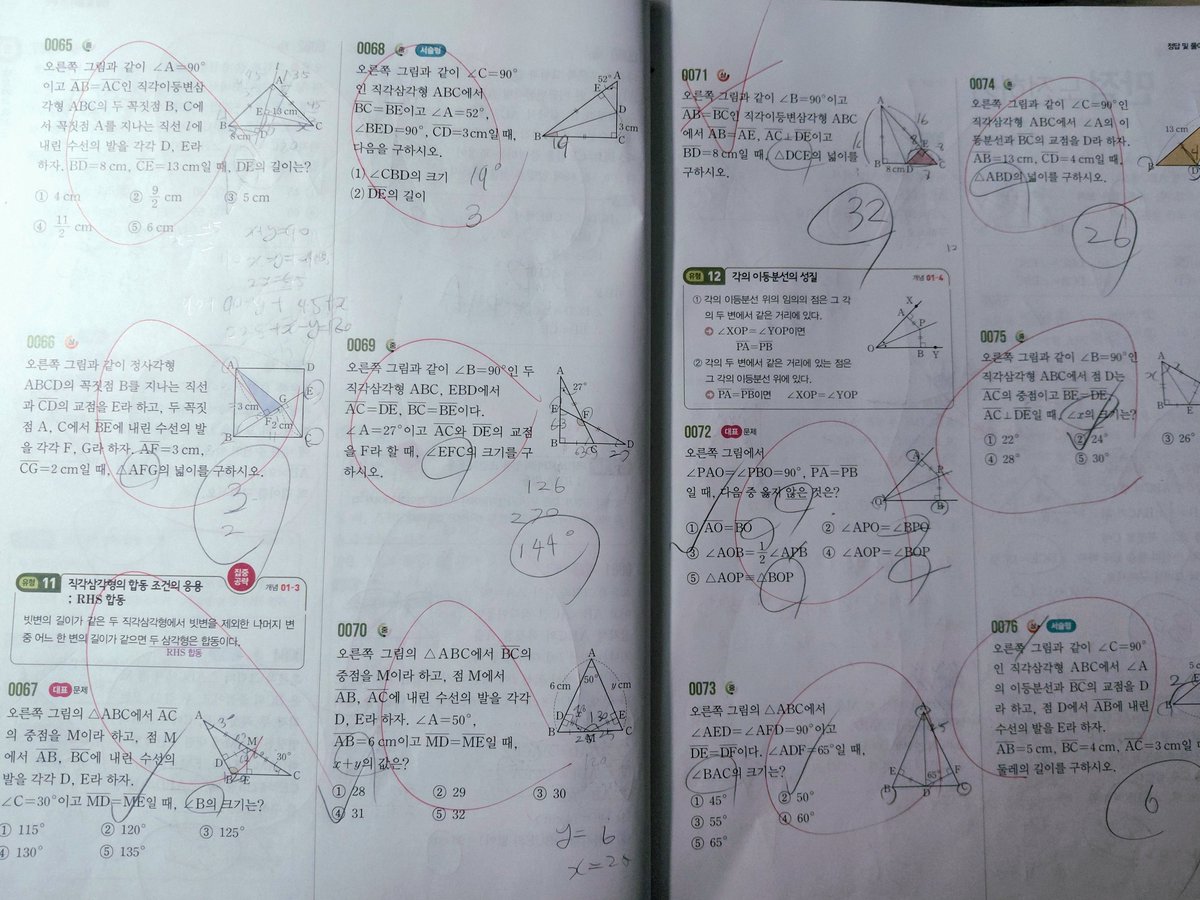 0065
오른쪽 그림과 같이 ∠A=90°
이고 AB=AC인 직각이등변삼
각형 ABC의 두 꼭짓점 B, C에
서 꼭짓점 A를 지나는 직선 l에
내린 수선의 발을 각각 D, E라
하자. BD=8 cm, CE=13 cm일 때, DE의 길이는?
① 4 cm ② 9/2 cm ③ 5 cm
④ 11/2 cm ⑤ 6 cm
0066
오른쪽 그림과 같이 정사각형
ABCD의 꼭짓점 B를 지나는 직선
과 CD의 교점을 E라 하고, 두 꼭짓
점 A, C에서 BE에 내린 수선의 발
을 각각 F, G라 하자. AF=3 cm,
CG=2 cm일 때, △AFG의 넓이를 구하시오.
A D E G 3 cm F 2 cm B C
3
2
유형 11 직각삼각형의 합동 조건의 응용
; RHS 합동
집중 공략
개념 01-3
빗변의 길이가 같은 두 직각삼각형에서 빗변을 제외한 나머지 변
중 어느 한 변의 길이가 같으면 두 삼각형은 합동이다.
RHS 합동
0067 대표 문제
오른쪽 그림의 △ABC에서 AC
의 중점을 M이라 하고, 점 M에
서 AB, BC에 내린 수선의
발을 각각 D, E라 하자.
∠C=30°이고 MD=ME일 때, ∠B의 크기는?
A M D 30° B E C
① 115° ② 120° ③ 125°
④ 130° ⑤ 135°
0068 중 서술형
오른쪽 그림과 같이 ∠C=90°
인 직각삼각형 ABC에서
BC=BE이고 ∠A=52°,
∠BED=90°, CD=3 cm일 때,
다음을 구하시오.
52° A E D 3 cm B C
19
(1) ∠CBD의 크기 19°
(2) DE의 길이
3
0069 중
오른쪽 그림과 같이 ∠B=90°인 두
직각삼각형 ABC, EBD에서
AC=DE, BC=BE이다.
∠A=27°이고 AC와 DE의 교점
을 F라 할 때, ∠EFC의 크기를 구
하시오.
A 27° E F 63 B C D
126
270
144°
0070 중
오른쪽 그림의 △ABC에서 BC의
중점을 M이라 하고, 점 M에서
AB, AC에 내린 수선의 발을 각각
D, E라 하자. ∠A=50°,
AB=6 cm이고 MD=ME일 때,
x+y의 값은?
A 50° 6 cm y cm D E B M C
① 28 ② 29 ③ 30
④ 31 ⑤ 32
y= 6
x=25
0071 상
오른쪽 그림과 같이 ∠B=90°이고
AB=BC인 직각이등변삼각형 ABC
에서 AB=AE, AC⊥DE이고
BD=8 cm일 때, △DCE의 넓이를
구하시오.
A 16 E B 8 cm D C
32
12
유형 12 각의 이등분선의 성질
개념 01-4
① 각의 이등분선 위의 임의의 점은 그 각
의 두 변에서 같은 거리에 있다.
➔ ∠XOP=∠YOP이면
PA=PB
② 각의 두 변에서 같은 거리에 있는 점은
그 각의 이등분선 위에 있다.
➔ PA=PB이면 ∠XOP=∠YOP
X A P O B Y
0072 대표 문제
오른쪽 그림에서
∠PAO=∠PBO=90°, PA=PB
일 때, 다음 중 옳지 않은 것은?
A P O B
① AO=BO ② ∠APO=∠BPO
③ ∠AOB=1/2∠APB ④ ∠AOP=∠BOP
⑤ △AOP≡△BOP
0073 중
오른쪽 그림의 △ABC에서
∠AED=∠AFD=90°이고
DE=DF이다. ∠ADF=65°일 때,
∠BAC의 크기는?
E F 65° B D C
① 45° ② 50°
③ 55° ④ 60°
⑤ 65°
정답 및 풀이
0074 중
오른쪽 그림과 같이 ∠C=90°인
직각삼각형 ABC에서 ∠A의 이
등분선과 BC의 교점을 D라 하자.
AB=13 cm, CD=4 cm일 때,
△ABD의 넓이를 구하시오.
13 cm
26
0075 중
오른쪽 그림과 같이 ∠B=90°인
직각삼각형 ABC에서 점 D는
AC의 중점이고 BE=DE,
AC⊥DE일 때, ∠x의 크기는?
A x B E
① 22° ② 24° ③ 26°
④ 28° ⑤ 30°
0076 상 서술형
오른쪽 그림과 같이 ∠C=90°
인 직각삼각형 ABC에서 ∠A
의 이등분선과 BC의 교점을 D
라 하고, 점 D에서 AB에 내린
수선의 발을 E라 하자.
AB=5 cm, BC=4 cm, AC=3 cm일
둘레의 길이를 구하시오.
6